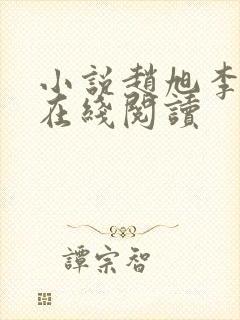 小説趙旭李
在綫閱讀
譚宗智